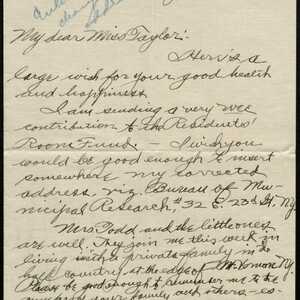 My dear Miss Taylor:
Here's a
large wish for your good health
and happiness.
I am sending a very wee
contribution to the Residents'
Room Fund. – I wish you
would be good enough to insert
somewhere my corrected
address, viz, Bureau of Mu-
nicipal Research, #32 E 23rd St. N.Y.
Mrs. Todd and the little ones
are well. They join me this week in
living with a private family in the
country at the edge of Mt. Vernon NY
Please be good enough to remember me to the
your family and others – es-